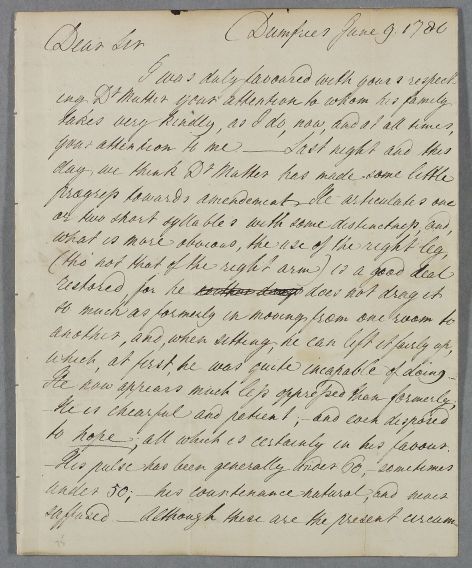 Dumfries June 9. 1786
Dear Sir
I was duly favoured with yours respect
ing Dr Mutter your attention to whom his family
takes very kindly, as I do, now, and at all times,
your attention to me — Last night and this
day, we think Dr Mutter has made some little
progress towards amendment. He articulates one
or two short syllables with some distinctness, and,
what is more obvious, the use of the right leg,
(tho' not that of the right arm) is a good deal
restored for he does not drag it
so much as formerly in moving from one room to
another, and, when sitting, he can lift it fairly up,
which, at first, he was quite incapable of doing –
He now appears much less oppressed than formerly;
He is chearful and patient, – and even disposed
to hope; all which is certainly in his favour.
– His pulse has been generally under 60, – sometimes
under 50; – his countenance natural, and never
suffused – although these are the present circum